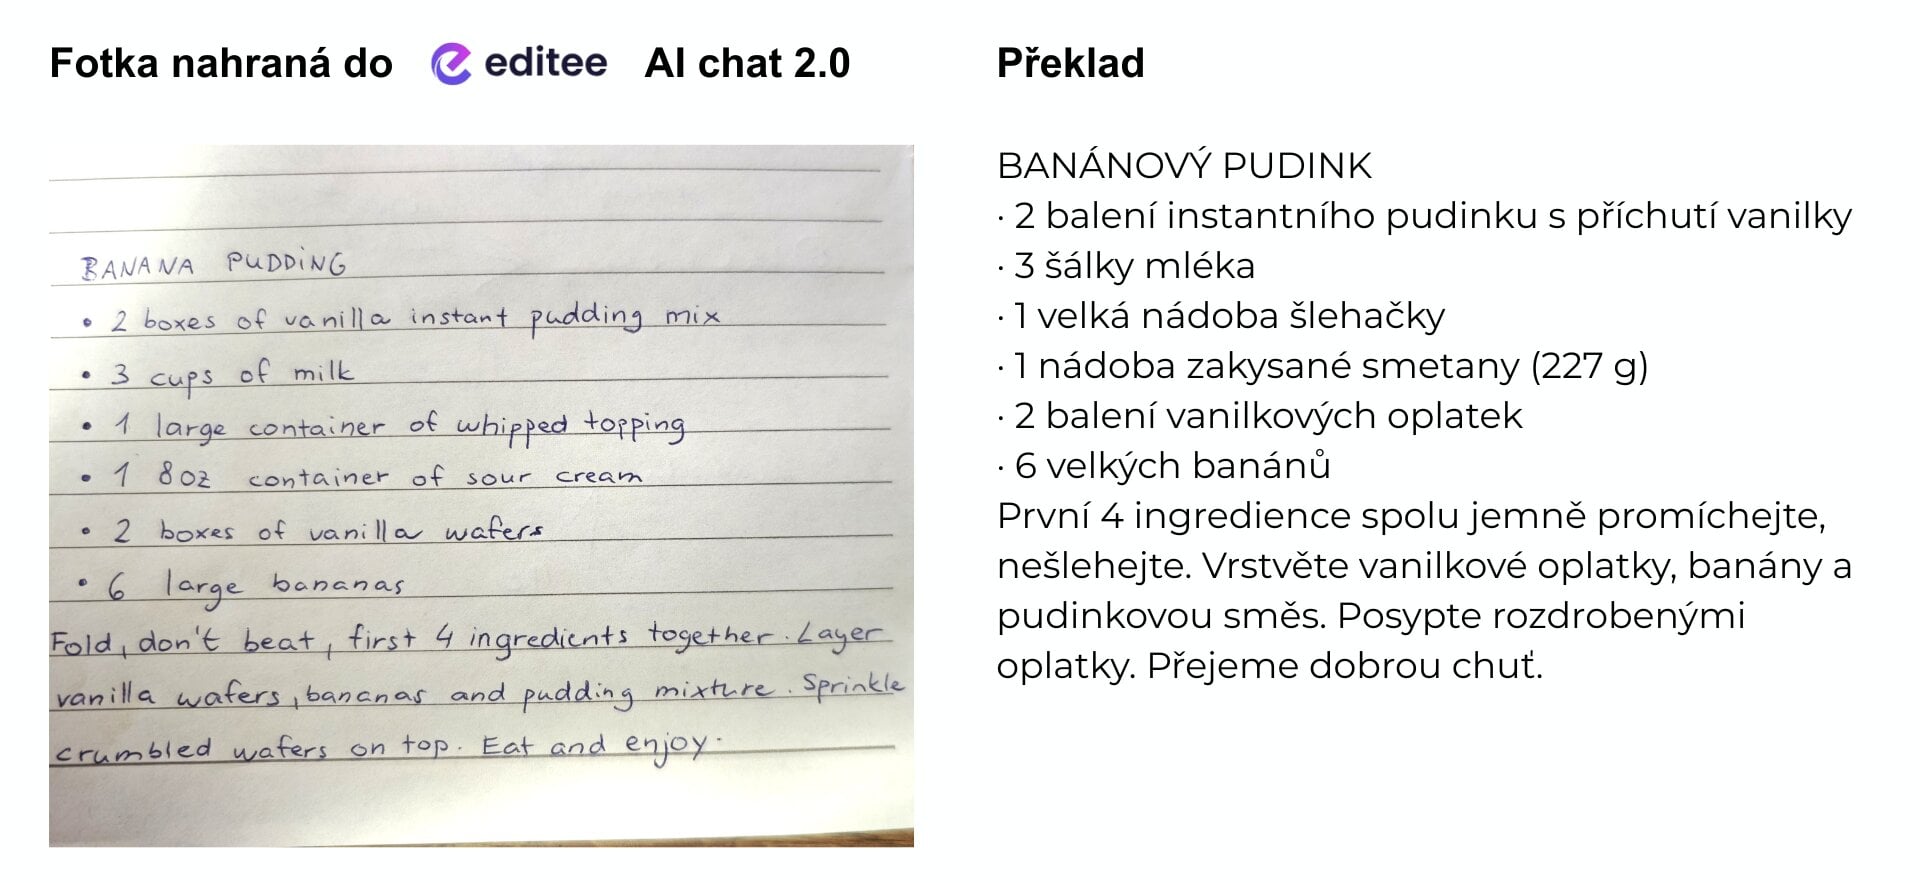 Fotka nahraná do editee AI chat 2.0
BANANA PUDDING
• 2 boxes of vanilla instant pudding mix
• 3 cups of milk
• 1 large container of whipped topping
• 1 8oz container of sour cream
• 2 boxes of vanilla wafers
• 6 large bananas
Fold, don't beat, first 4 ingredients together. Layer
vanilla wafers, bananas and pudding mixture. Sprinkle
crumbled wafers on top. Eat and enjoy.
Překlad
BANÁNOVÝ PUDINK
· 2 balení instantního pudinku s příchutí vanilky
· 3 šálky mléka
· 1 velká nádoba šlehačky
· 1 nádoba zakysané smetany (227 g)
· 2 balení vanilkových oplatek
· 6 velkých banánů
První 4 ingredience spolu jemně promíchejte,
nešlehejte. Vrstvěte vanilkové oplatky, banány a
pudinkovou směs. Posypte rozdrobenými
oplatky. Přejeme dobrou chuť.